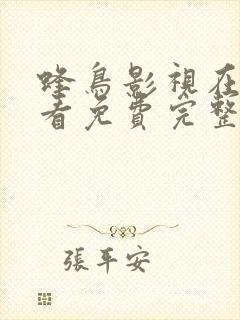 蜂鳥影視在
看免費完整
張平安